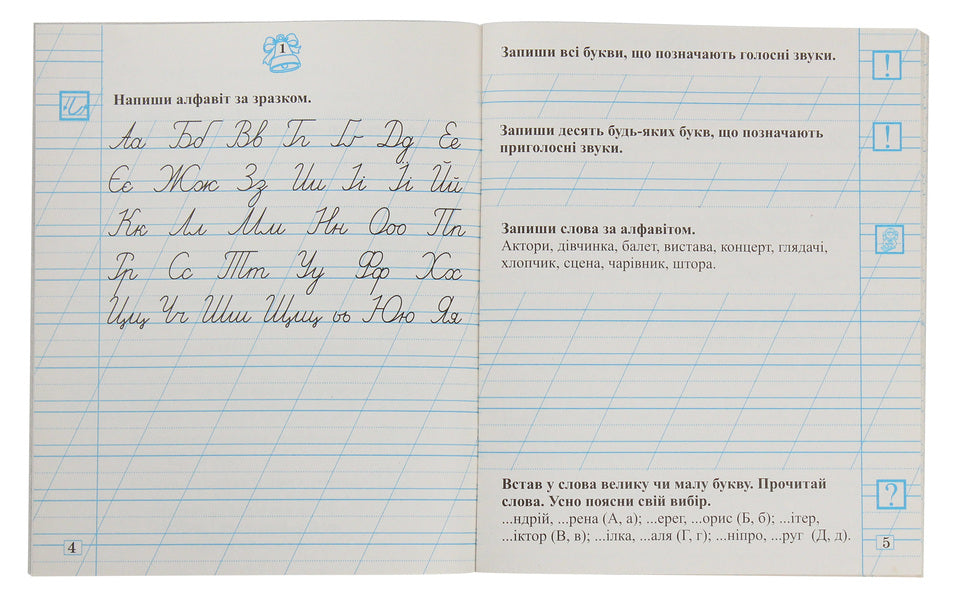 1
Напиши алфавіт за зразком.
Аа Бб Вв Гг Ґґ Дд Ее
Єє Жж Зз Ии Іі Її Йй
Кк Лл Мм Нн Оо Пп
Рр Сс Тт Уу Фф Хх
Цц Чч Шш Щщ ьь Юю Яя
4
Запиши всі букви, що позначають голосні звуки.
!
Запиши десять будь-яких букв, що позначають
приголосні звуки.
!
Запиши слова за алфавітом.
Актори, дівчинка, балет, вистава, концерт, глядачі,
хлопчик, сцена, чарівник, штора.
Встав у слова велику чи малу букву. Прочитай
слова. Усно поясни свій вибір.
?
...ндрій, ...рена (А, а); ...ерег, ...орис (Б, б); ...ітер,
...іктор (В, в); ...ілка, ...аля (Г, г); ...ніпро, ...руг (Д, д).
5